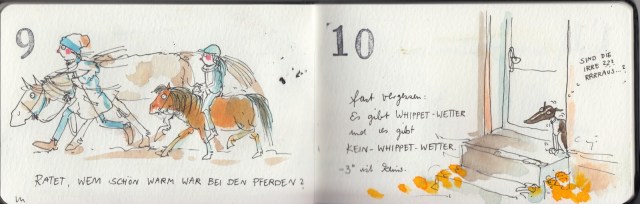 9
RATET, WEM SCHÖN WARM WAR BEI DEN PFERDEN?
10
Fast vergessen:
Es gibt WHIPPET-WETTER
und es gibt
KEIN-WHIPPET-WETTER.
-3°
SIND DIE
IRRE ???
RRRRAUS...?